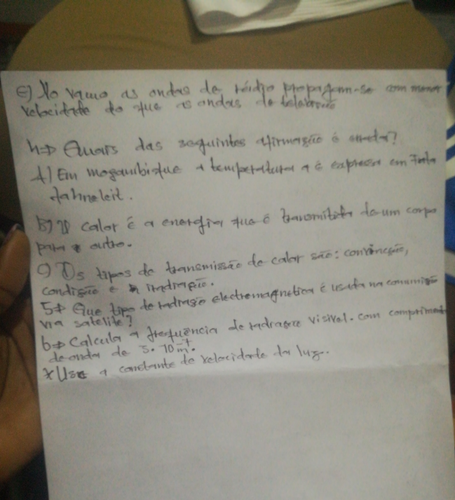 e) No vacuo as ondas de rádio propagam-se com menor
velocidade do que as ondas de televisão
4=> Quais das seguintes afirmação é errada?
A) Em moçambique a temperatura a é expressa em
fahneleit.
b) O calor é a energia que é transmitida de um corpo
para outro.
c) Os tipos de transmissão de calor são: convincção,
condição e irradiação.
5=> Que tipo de radiação electromagnetica é usada na comunição
via satelite?
6=> Calcula a frequência de radiação visível. com comprimento
de onda de 5.10^-7 m.
*Use a constante de velocidade da luz..